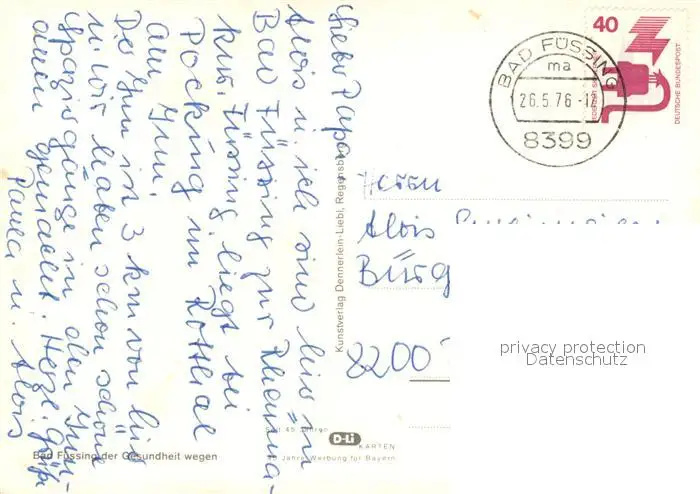 Lieber Papa,
Alois u. ich sind hier in
Bad Füssing zur Rheuma-
kur. Füssing liegt bei
Pocking im Rottal
am Inn.
Der Inn ist 3 km von hier
u. wir haben schon schöne
Spaziergänge in den Inn-
auen gemacht. Herzl. Grüße
Paula u. Alois
Kunstverlag Dennerlein-Liebl, Regensb
Bad Füssing der Gesundheit wegen
45 Jahre
D-Li
KARTEN
Jahre Werbung für Bayern
BAD FÜSSING
ma
26.5.76-1
8399
40
DEUTSCHE BUNDESPOST
Herrn
Alois
Bürg
8200
privacy protection
Datenschutz